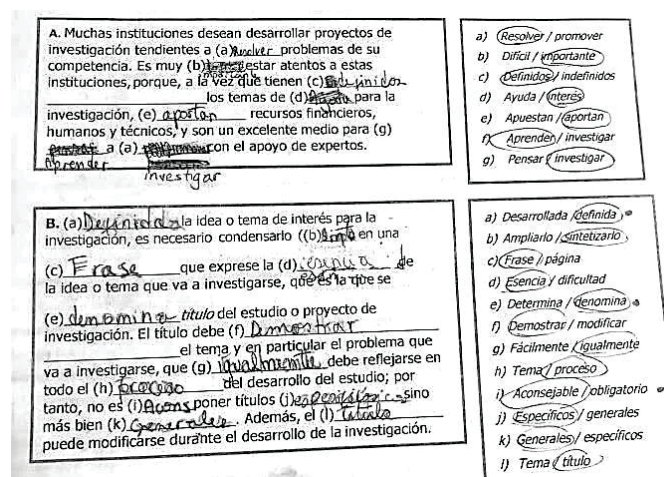 A. Muchas instituciones desean desarrollar proyectos de
investigación tendientes a (a) Resolver problemas de su
competencia. Es muy (b) estar atentos a estas
importante
instituciones, porque, a la vez que tienen (c) Definidos
los temas de (d) para la
investigación, (e) aportan recursos financieros,
humanos y técnicos, y son un excelente medio para (g)
a (a) con el apoyo de expertos.
Aprender
investigar
a) Resolver / promover
b) Difícil / importante
c) Definidos / indefinidos
d) Ayuda / interés
e) Apuestan / aportan
f) Aprender / investigar
g) Pensar / investigar
B. (a) Definida la idea o tema de interés para la
investigación, es necesario condensarlo ((b) en una
(c) Frase que exprese la (d) esencia de
la idea o tema que va a investigarse, que es la que se
(e) denomina título del estudio o proyecto de
investigación. El título debe (f) Demostrar
el tema y en particular el problema que
va a investigarse, que (g) igualmente debe reflejarse en
todo el (h) proceso del desarrollo del estudio; por
tanto, no es (i) Acons poner títulos (j) especificos sino
más bien (k) Generales. Además, el (l) titulo
puede modificarse durante el desarrollo de la investigación.
a) Desarrollada / definida
b) Ampliarlo / sintetizarlo
c) Frase / página
d) Esencia / dificultad
e) Determina / denomina
f) Demostrar / modificar
g) Fácilmente / igualmente
h) Tema / proceso
i) Aconsejable / obligatorio
j) Específicos / generales
k) Generales / específicos
l) Tema / título